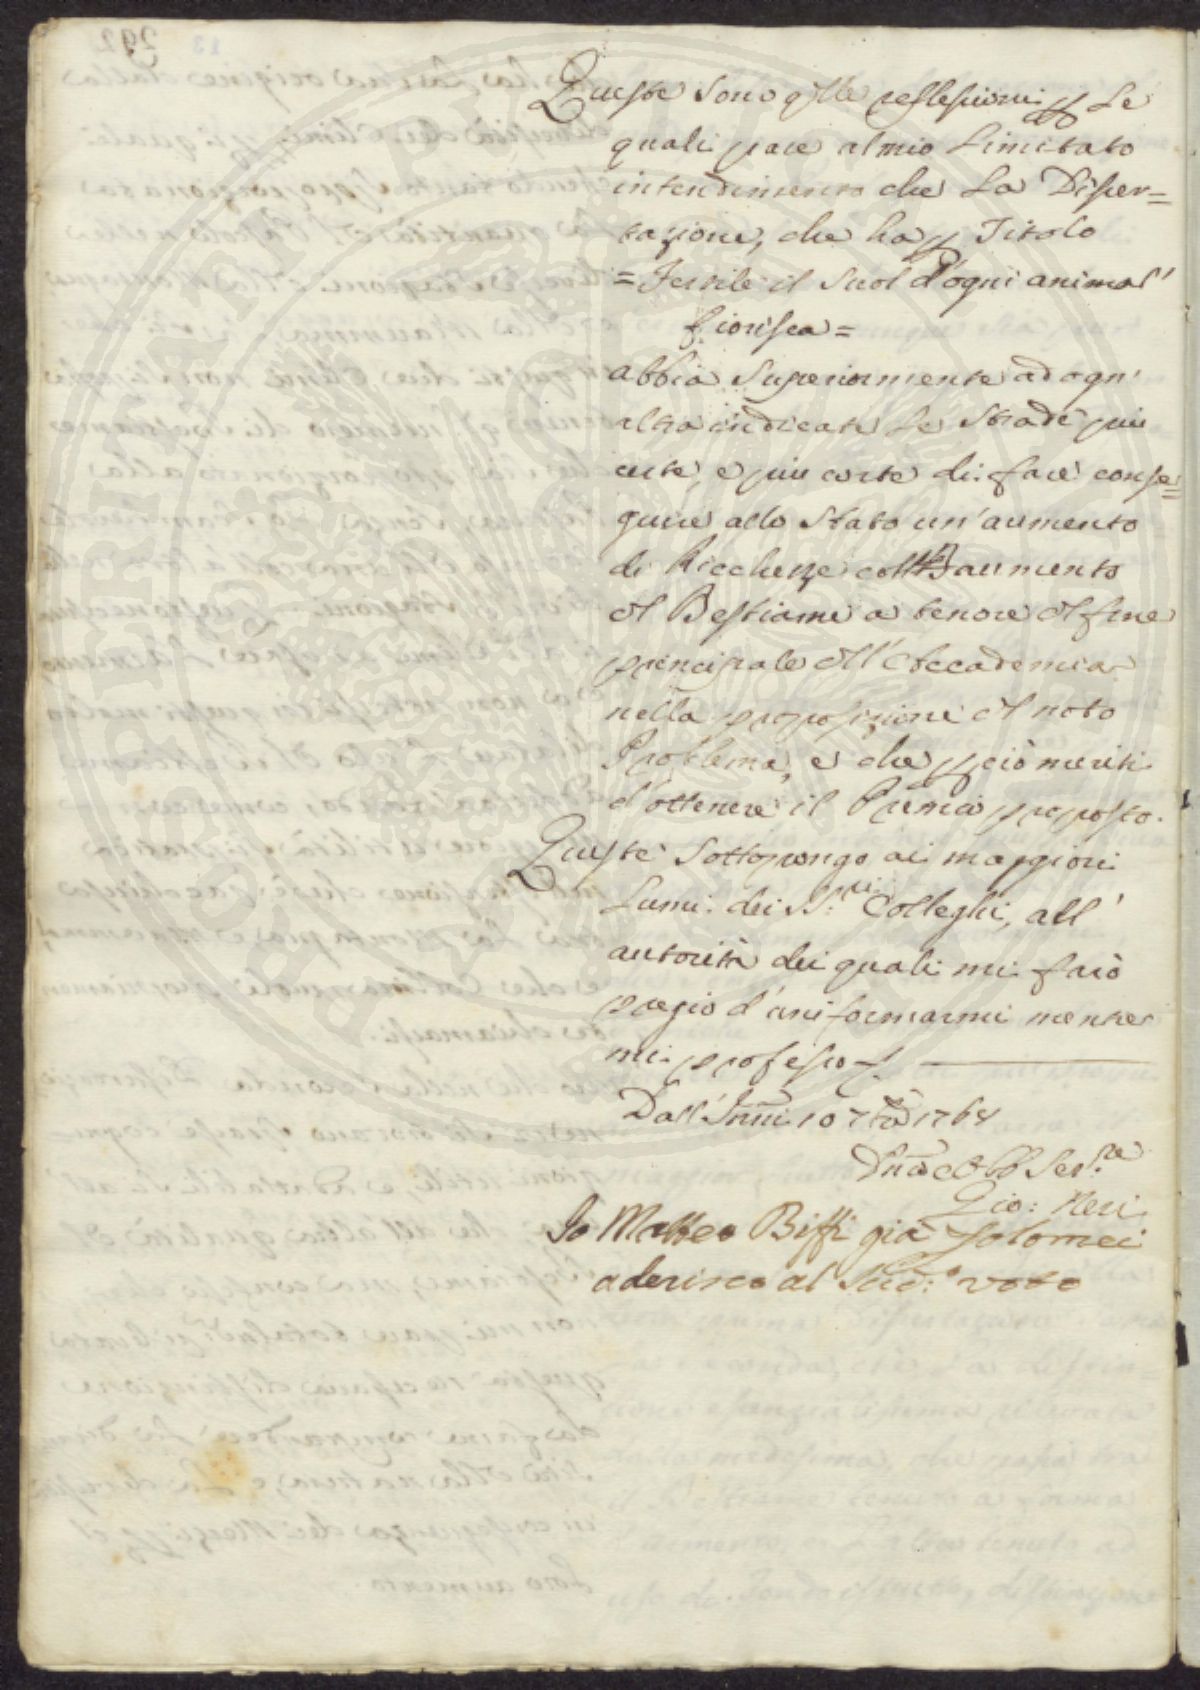 Queste sono q.ste reflessioni p Le
quali pare al mio Limitato
intendimento che La Disser=
tazione, che ha p Titolo
=Fertile il Suol d'ogni animal'
fiorisca=
abbia Superiormente ad ogn'
altra indicate Le Strade piu
certe, e piu corte di fare conse=
guire allo Stato un'aumento
di Ricchezze coll' aumento
del Bestiame a tenore del fine
principale dell'Accademia
nella proposizione del noto
Problema, e che p ciò meriti
d'ottenere il Premio proposto.
Queste Sottopongo ai maggiori
Lumi dei SS.ri Colleghi, all'
autorità dei quali mi farò
pregio d'uniformarmi mentre
mi professo
Dall' 10 7bre 1764
Obb Ser.re
Gio: Neri
Io Matteo Biffi già Tolomei
aderisco al Sud.o voto